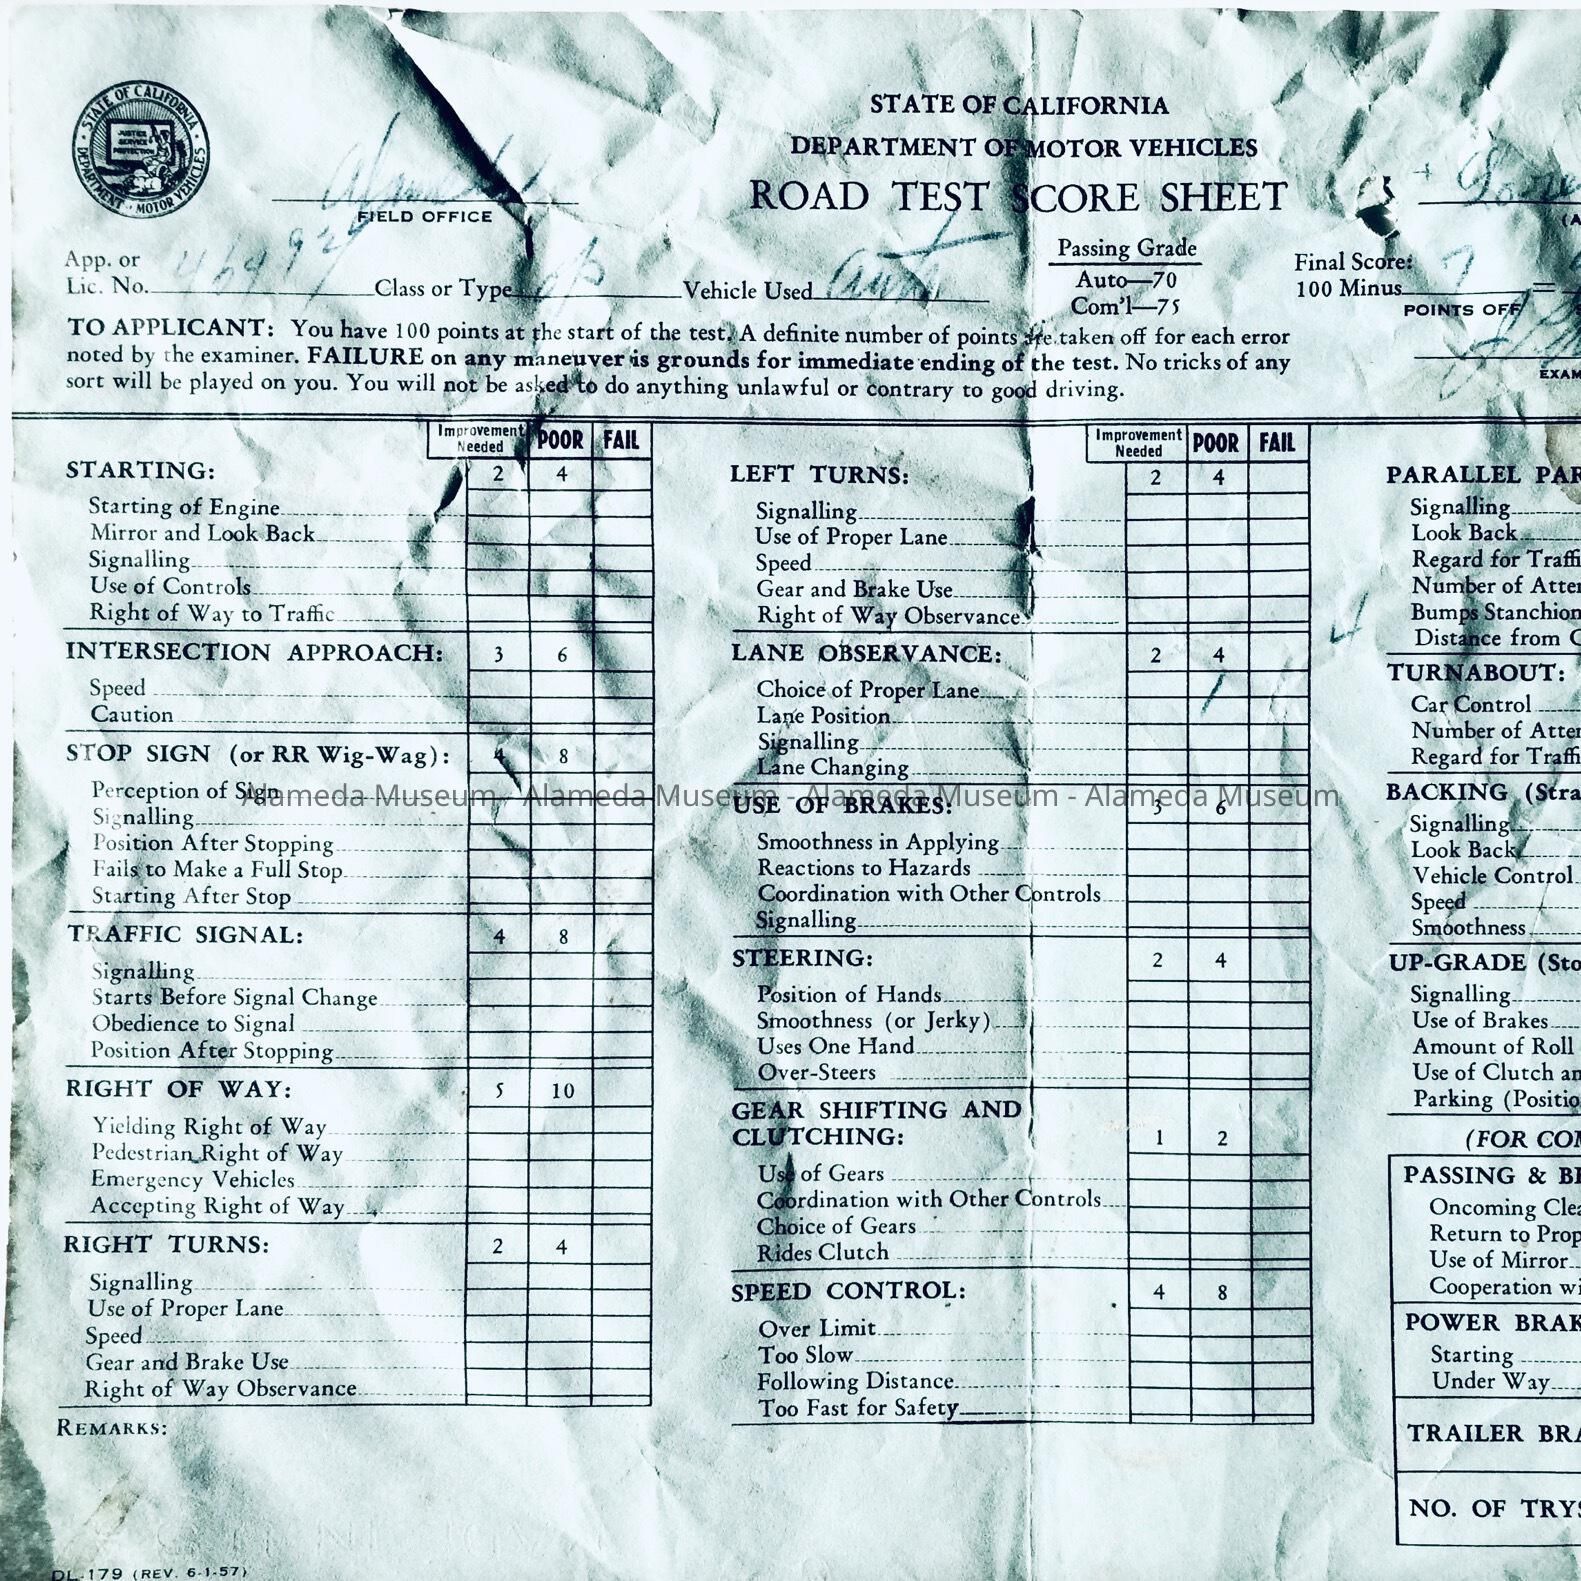 STATE OF CALIFORNIA
DEPARTMENT OF MOTOR VEHICLES
ROAD TEST SCORE SHEET
STATE OF CALIFORNIA
JUSTICE
SERVICE
PROTECTION
DEPARTMENT MOTOR VEHICLES
Alameda
FIELD OFFICE
App. or
Lic. No. Class or Type Vehicle Used Auto
Passing Grade
Auto—70
Com'l—75
Final Score: 7
100 Minus =
POINTS OFF
EXAM
TO APPLICANT: You have 100 points at the start of the test. A definite number of points are taken off for each error
noted by the examiner. FAILURE on any maneuver is grounds for immediate ending of the test. No tricks of any
sort will be played on you. You will not be asked to do anything unlawful or contrary to good driving.
Improvement Needed POOR FAIL
STARTING: 2 4
Starting of Engine
Mirror and Look Back
Signalling
Use of Controls
Right of Way to Traffic
INTERSECTION APPROACH: 3 6
Speed
Caution
STOP SIGN (or RR Wig-Wag): 4 8
Perception of Sign
Signalling
Position After Stopping
Fails to Make a Full Stop
Starting After Stop
TRAFFIC SIGNAL: 4 8
Signalling
Starts Before Signal Change
Obedience to Signal
Position After Stopping
RIGHT OF WAY: 5 10
Yielding Right of Way
Pedestrian Right of Way
Emergency Vehicles
Accepting Right of Way
RIGHT TURNS: 2 4
Signalling
Use of Proper Lane
Speed
Gear and Brake Use
Right of Way Observance
REMARKS:
DL-179 (REV. 6-1-57)
Improvement Needed POOR FAIL
LEFT TURNS: 2 4
Signalling
Use of Proper Lane
Speed
Gear and Brake Use
Right of Way Observance
LANE OBSERVANCE: 2 4
Choice of Proper Lane
Lane Position
Signalling
Lane Changing
USE OF BRAKES: 3 6
Smoothness in Applying
Reactions to Hazards
Coordination with Other Controls
Signalling
STEERING: 2 4
Position of Hands
Smoothness (or Jerky)
Uses One Hand
Over-Steers
GEAR SHIFTING AND
CLUTCHING: 1 2
Use of Gears
Coordination with Other Controls
Choice of Gears
Rides Clutch
SPEED CONTROL: 4 8
Over Limit
Too Slow
Following Distance
Too Fast for Safety
PARALLEL PAR
Signalling
Look Back
Regard for Traffi
Number of Atte
Bumps Stanchion
4 Distance from C
TURNABOUT:
Car Control
Number of Atte
Regard for Traffi
BACKING (Stra
Signalling
Look Back
Vehicle Control
Speed
Smoothness
UP-GRADE (Sto
Signalling
Use of Brakes
Amount of Roll
Use of Clutch an
Parking (Positio
(FOR COM
PASSING & BE
Oncoming Clea
Return to Prop
Use of Mirror
Cooperation wi
POWER BRAK
Starting
Under Way
TRAILER BRA
NO. OF TRYS
Alameda Museum - Alameda Museum - Alameda Museum - Alameda Museum